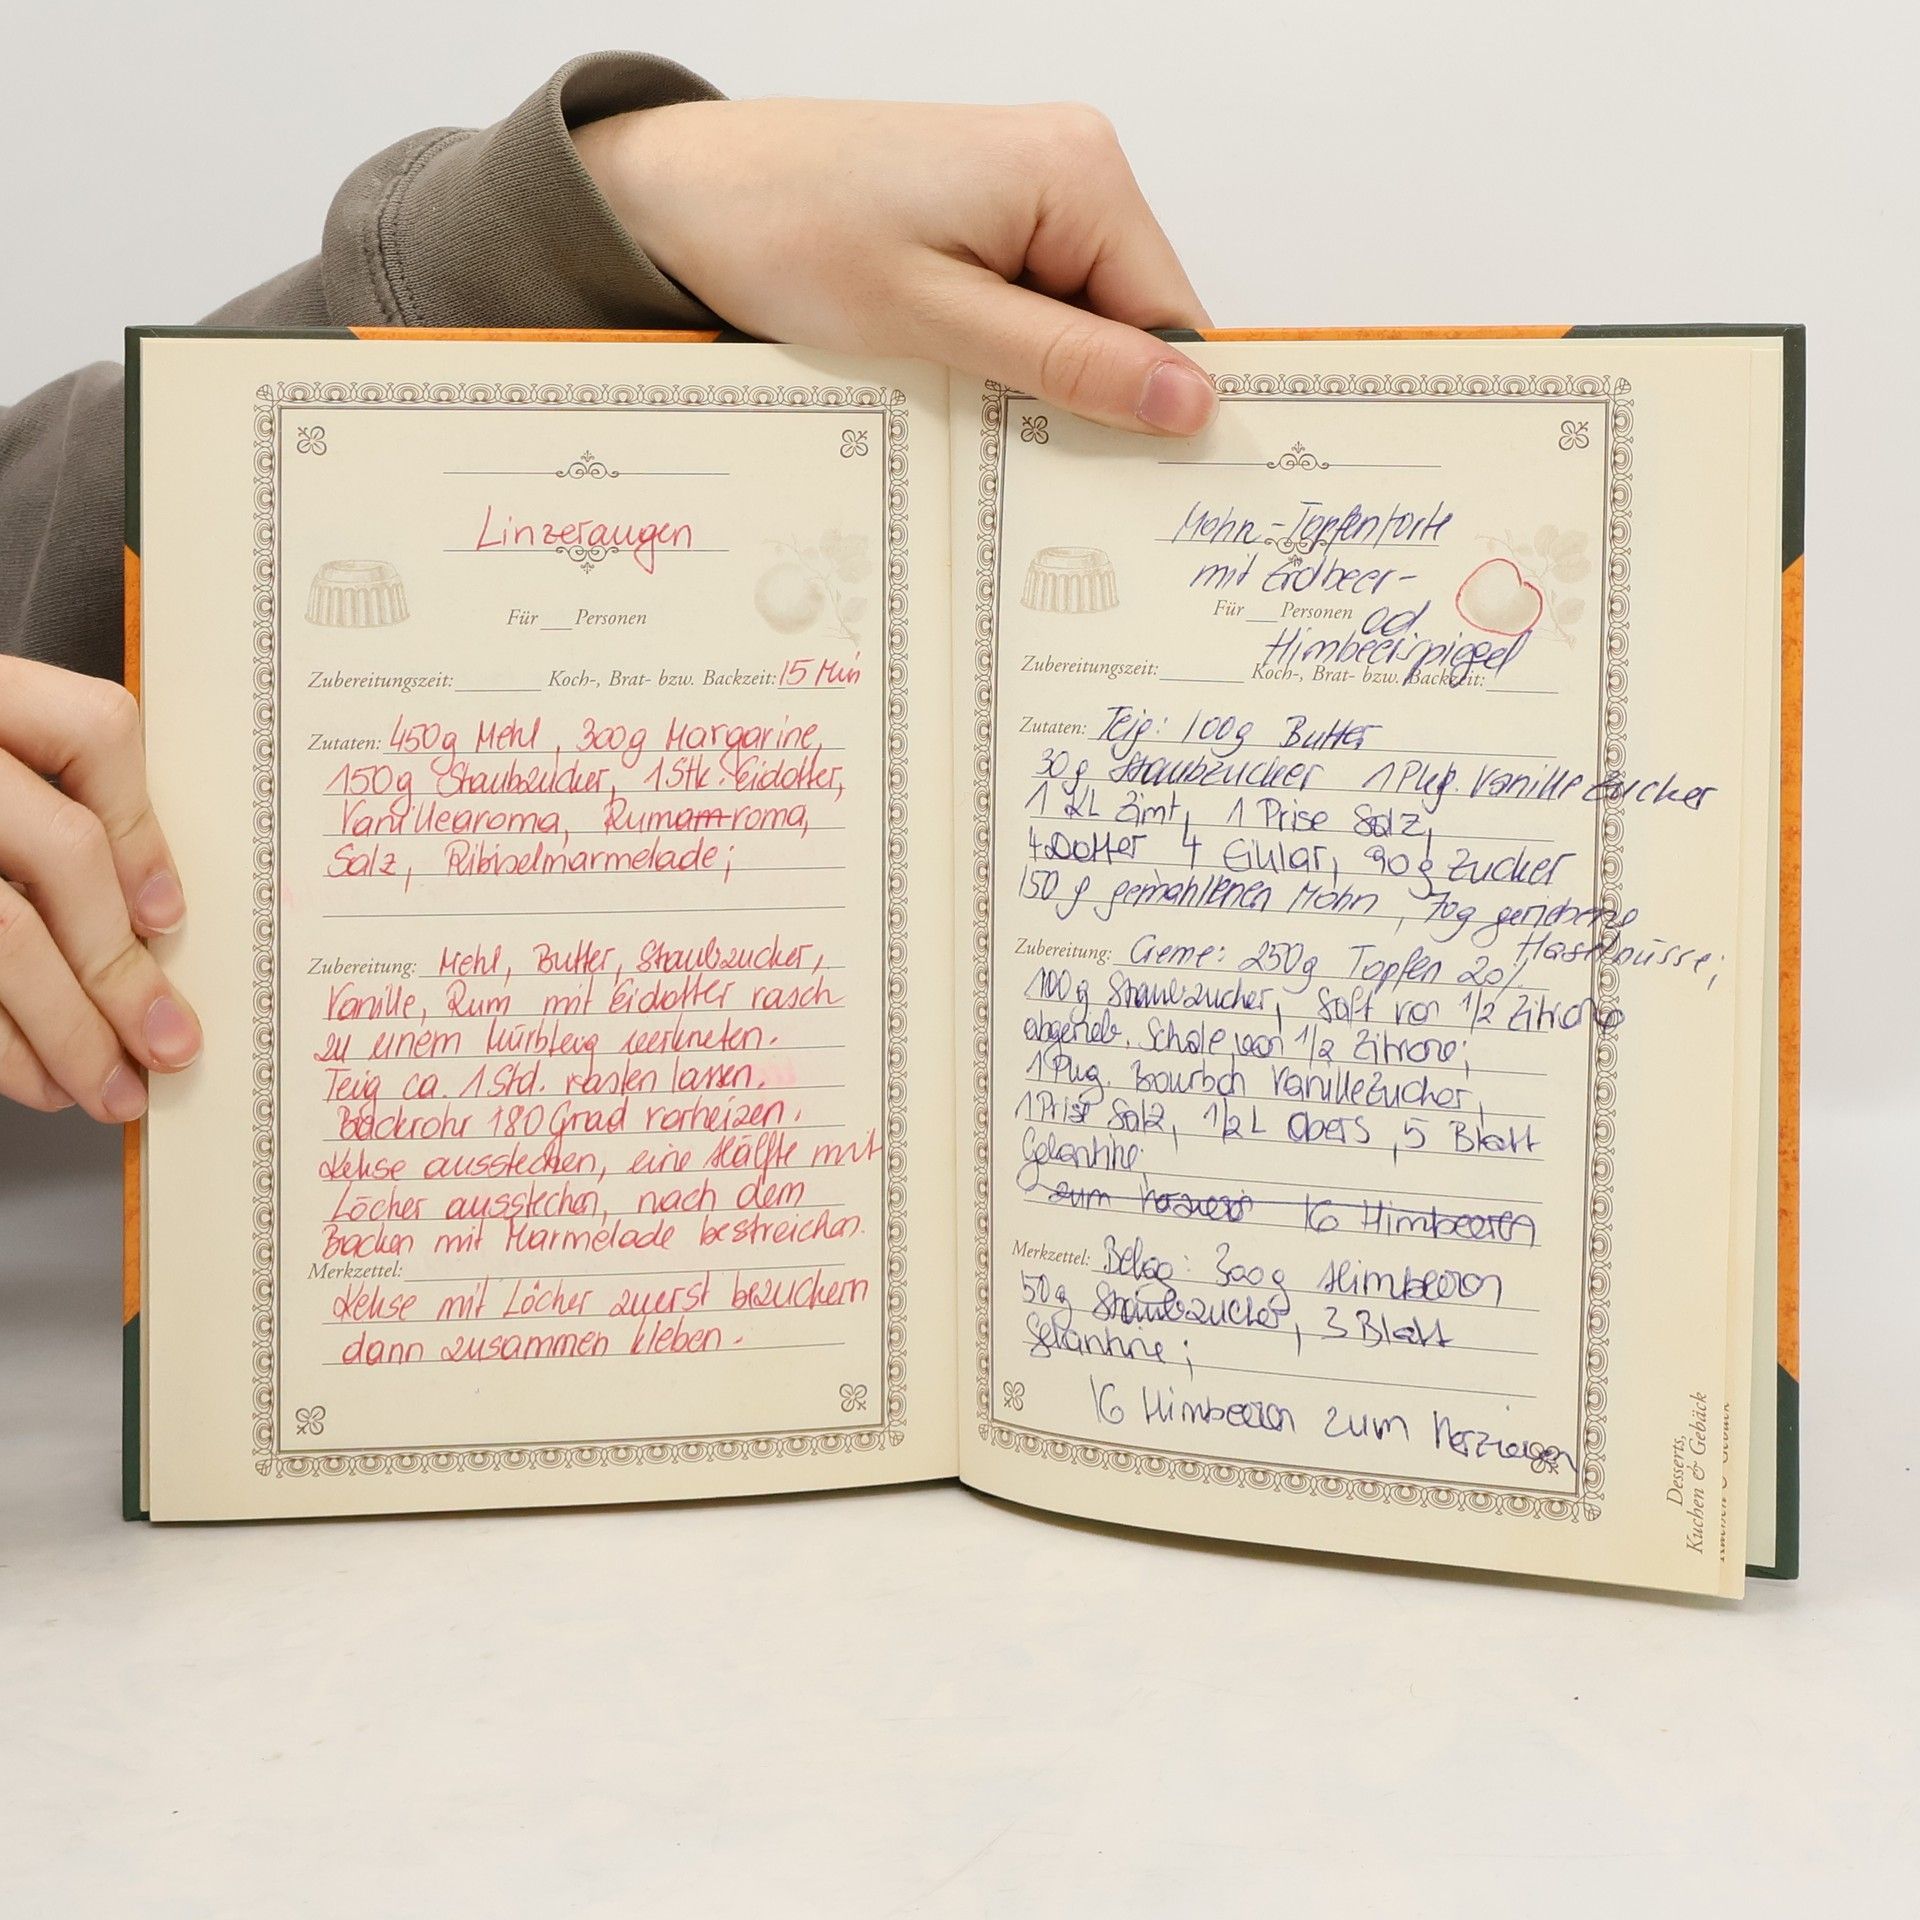 Linzeraugen
Für __ Personen
Zubereitungszeit: Koch-, Brat- bzw. Backzeit: 15 Min
Zutaten: 450g Mehl, 300g Margarine,
150g Staubzucker, 1 Stk. Eidotter,
Vanillearoma, Rumamroma,
Salz, Ribiselmarmelade;
Zubereitung: Mehl, Butter, Staubzucker,
Vanille, Rum mit Eidotter rasch
zu einem Mürbteig verkneten.
Teig ca. 1 Std. rasten lassen.
Backrohr 180 Grad vorheizen.
Kekse ausstechen, eine Hälfte mit
Löcher ausstechen, nach dem
Backen mit Marmelade bestreichen.
Merkzettel:
Kekse mit Löcher zuerst bezuckern
dann zusammen kleben.
Mohn-Topfentorte
mit Erdbeer-
Für __ Personen od
Himbeerspiegel
Zubereitungszeit: Koch-, Brat- bzw. Backzeit:
Zutaten: Teig: 100g Butter
30g Staubzucker 1 Pkg. Vanillezucker
1 KL Zimt, 1 Prise Salz,
4 Dotter 4 Eiklar, 90g Zucker
150 g gemahlenen Mohn, 70g geriebene
Haselnüsse;
Zubereitung: Creme: 250g Topfen 20%
100g Staubzucker, Saft von 1/2 Zitrone
abgerieb. Schale von 1/2 Zitrone;
1 Pkg. Bourbon Vanillezucker,
1 Prise Salz, 1/2 L Obers, 5 Blatt
Gelantine;
zum 16 Himbeeren
Merkzettel: Belag: 300g Himbeeren
50g Staubzucker, 3 Blatt
Gelantine;
16 Himbeeren zum Verzieren
Desserts,
Kuchen & Gebäck